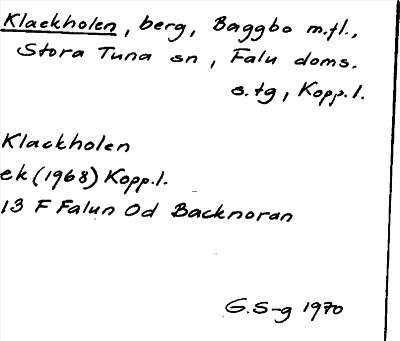 Klackholen, berg, Baggbo m.fl.,
Stora Tuna sn, Falu doms.
s.tg, Kopp.l.
Klackholen
ek (1968) Kopp.l.
13 F Falun Od Backnoran
G.S-g 1970